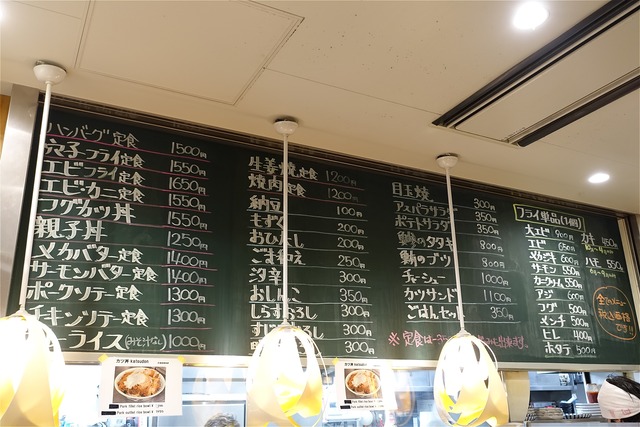 ハンバーグ定食 1500円
穴子フライ定食 1550円
エビフライ定食 1650円
エビ・カニ定食 1550円
フグカツ丼 1550円
親子丼 1250円
メカバター定食 1400円
サーモンバター定食 1400円
ポークソテー定食 1300円
チキンソテー定食 1300円
ーライス(みそ汁なし) 1000円
生姜焼定食 1200円
焼肉定食 1200円
納豆 100円
もずく 200円
おひたし 200円
ごま和え 250円
汐辛 300円
おしんこ 350円
しらすおろし 300円
300円
300円
目玉焼 300円
アスパラサラダ 350円
ポテトサラダ 350円
鯵のタタキ 800円
800円
チャーシュー 1000円
カツサンド 1100円
ごはんセット 350円
※定食は
フライ単品(1個)
大エビ 800円
エビ 650円
サーモン 550円
カニクリーム 550円
アジ 600円
フグ 500円
メンチ 500円
ヒレ 400円
ホタテ 500円
カキ 450円
ハモ 550円
全てのメニュー
税込価格
です!!
カツ丼 katsudon
カツ丼 katsudon